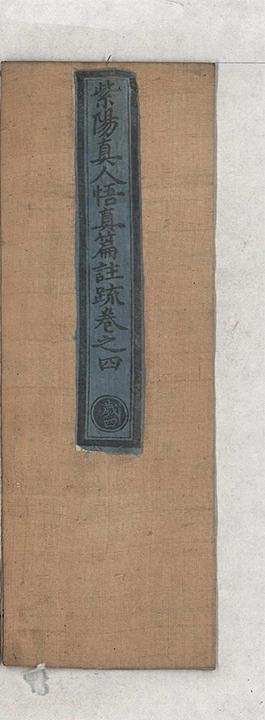 紫陽真人悟真篇註疏卷之四
歲四